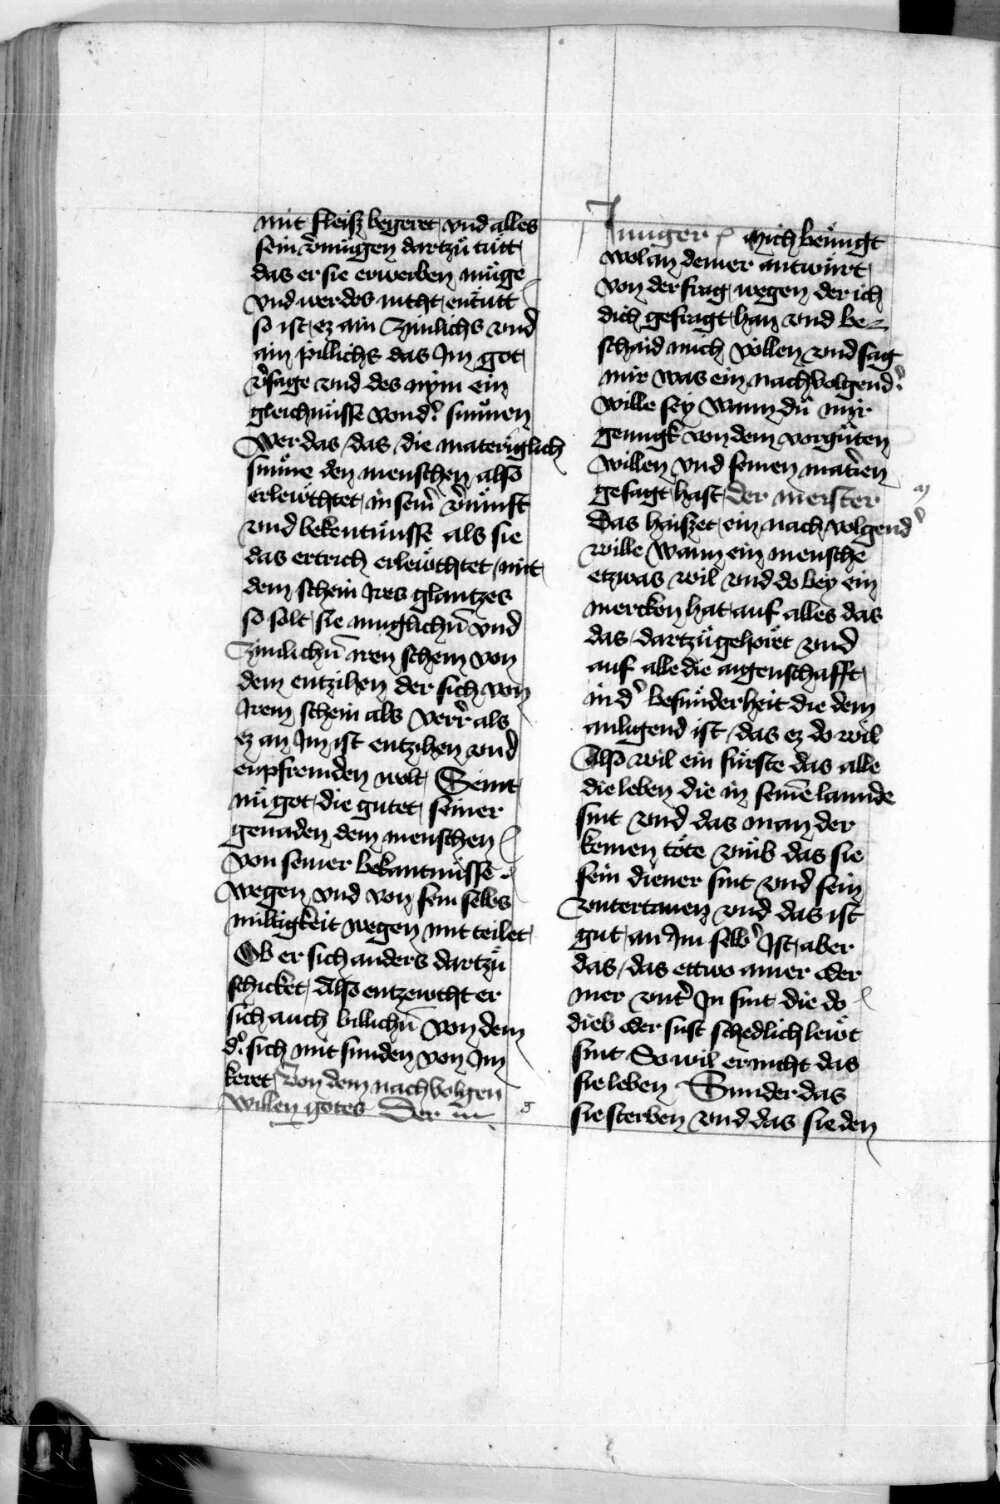 mit fleisz begeret vnd alles
sein v̉mugen dartzů tůtt
das er sie erwerben můge
vnd wer des nicht entutt
so ist ez ain Czimlichs vnd
ain pillichs das Im got
v̉sage vnd des nym ein
gleichnůsse von d̉ sunnen
Wer das das die materiglich
sunne den menschen also
erlewchtet in sein̉ v̉nunft
vnd bekentnusse als sie
das ertrich erlewchtet mit
dem schein Ires glantzes
so solt sie muglichn̄ vnd
Czimlichn̄ iren schein von
dem entzihen der sich von
Irem schein als verr̉ als
ez an Im ist entzihen vnd
enpfremden wolt Seint
nů got die gutet seiner
genaden dem menschen
von seiner bekantnůsse
wegen vnd von sein selbs
miltigkeit wegen mit teilet
Ob er sich anders dartzů
schicket Also entzewcht er
sich auch billichn̄ von dem
d̉ sich mit sunden von Im
keret Von dem nachvolgen
willen gotes Der iu
Iunger Mich benůgt
wol an deiner antwurt
von der frag wegen der ich
dich gefragt han vnd be=
schaid mich vollen vnd sag
mir was ein nachvolgend̉
wille sey Wann dů mir
genugk von dem vorgůten
willen vnd seinen matr̉ien
gesagt hast der meister
Das haiszet ein nach volgend̉
wille Wann ein mensche
etzwas wil vnd do bey ein
mercken hat auf alles das
das dartzů gehoret vnd
auf alle die aigenschafft
in d̉ besunderheit die dem
anligend ist das ez do wil
Also wil ein fürste das alle
die leben die in seinē lannde
sint vnd das man der
keinen töte vmb das sie
sein diener sint vnd sein
vntertanen vnd das ist
gut an Im selb̉ Ist aber
das das ettwo ainer oder
mer vnt̉ In sint die do
dieb oder sust schedlich lewt
sint So wil er nicht das
sie leben Sunder das
sie sterben vnd das sie den